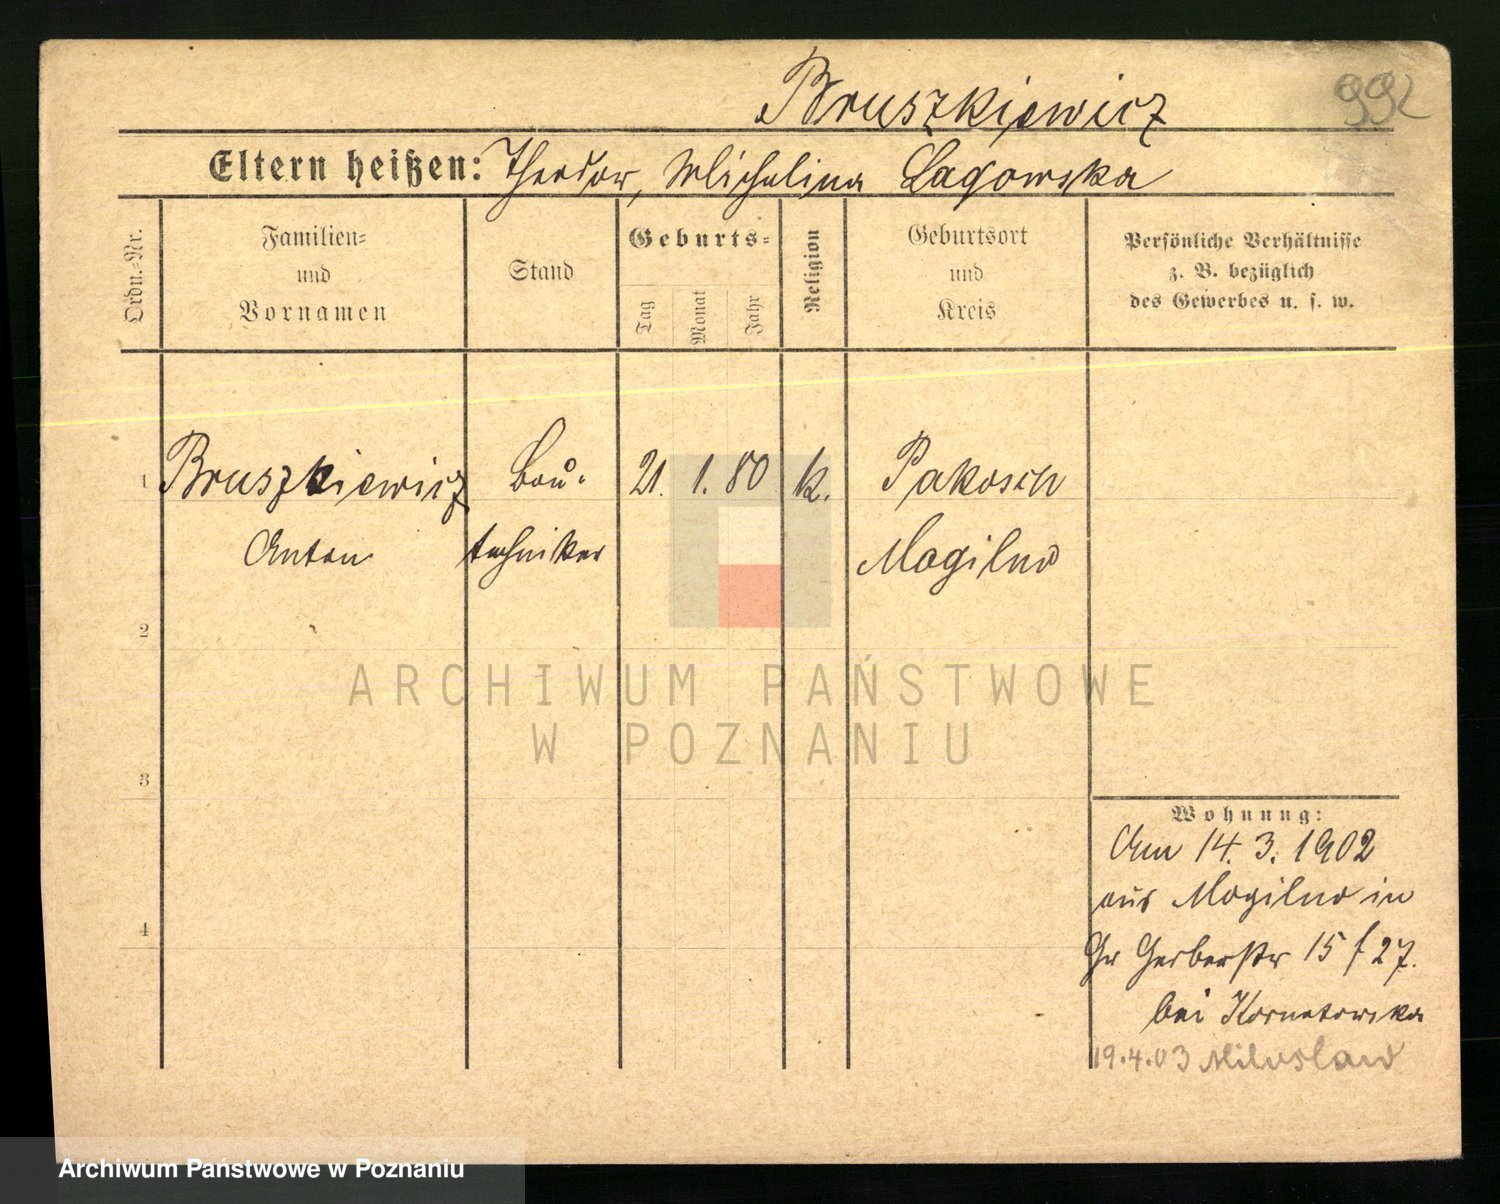 992
Bruszkiewicz
Eltern heißen: Theodor, Michalina Lagowska
Ordn.-Nr.
Familien-
und
Vornamen
Stand
Geburts-
Tag
Monat
Jahr
Religion
Geburtsort
und
Kreis
Persönliche Verhältnisse
z. B. bezüglich
des Gewerbes u. s. w.
1 Bruszkiewicz Bau- 21. 1. 80 k. Pakosch
Anton techniker Mogilno
2
3
4
Wohnung:
Am 14. 3. 1902
aus Mogilno in
Gr Gerberstr 15 f 27.
bei Kornatowska
19.4.03 Miloslaw
ARCHIWUM PAŃSTWOWE
W POZNANIU
Archiwum Państwowe w Poznaniu